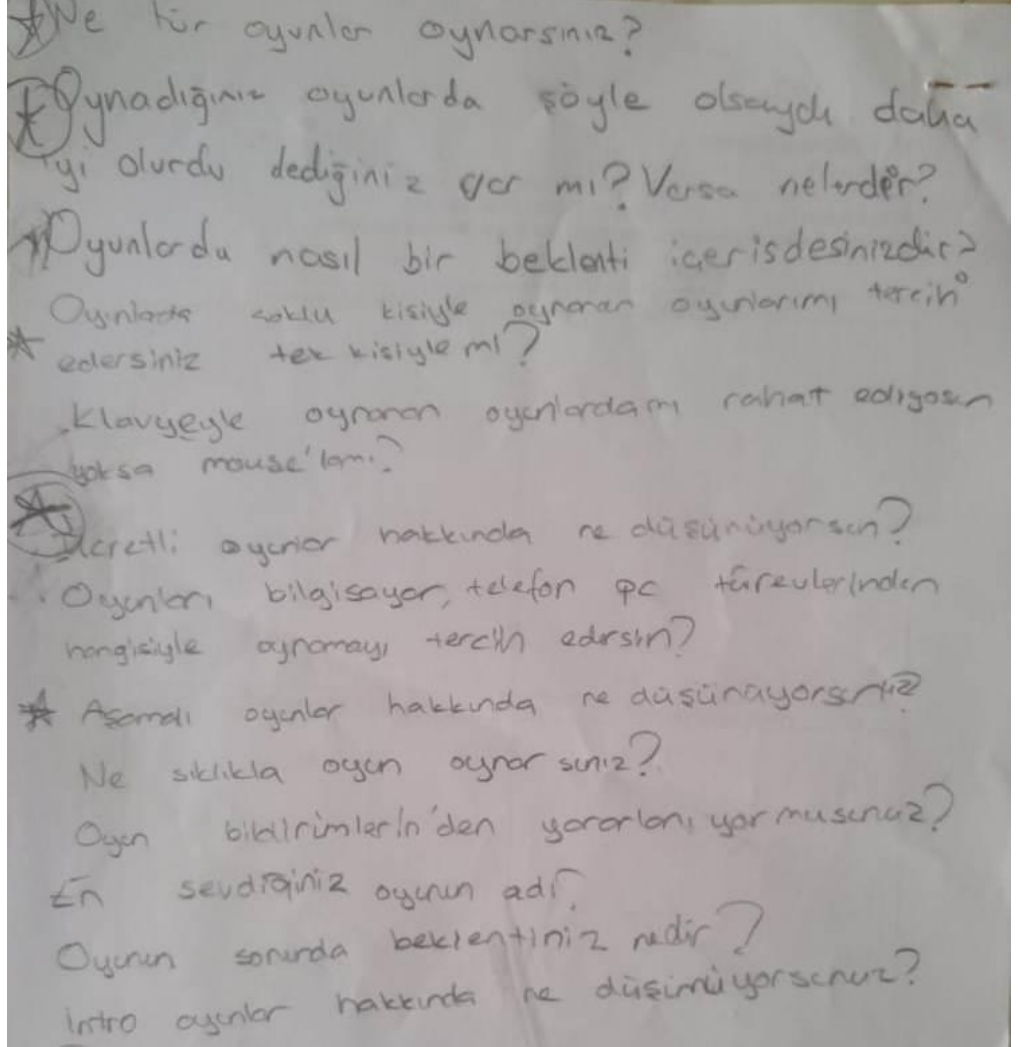 Ne tür oyunlar oynarsınız?
Oynadığınız oyunlarda şöyle olsaydı daha
iyi olurdu dediğiniz var mı? Varsa nelerdir?
Oyunlarda nasıl bir beklenti içerisdesinizdir?
Oyunlarda çoklu kisiyle oynanan oyunlarımı tercih
edersiniz tek kisiyle mi?
Klavyeyle oynanan oyunlardamı rahat ediyosun
yoksa mouse'lamı?
Ücretli oyunlar hakkında ne düşünüyorsun?
Oyunları bilgisayar, telefon pc türevlerinden
hangisiyle oynamayı tercih edersin?
Aşamalı oyunlar hakkında ne düşünüyorsunuz?
Ne sıklıkla oyun oynarsınız?
Oyun bildirimlerin'den yararlanıyormusunuz?
En sevdiğiniz oyunun adı?
Oyunun sonunda beklentiniz nedir?
intro oyunlar hakkında ne düşünüyorsunuz?